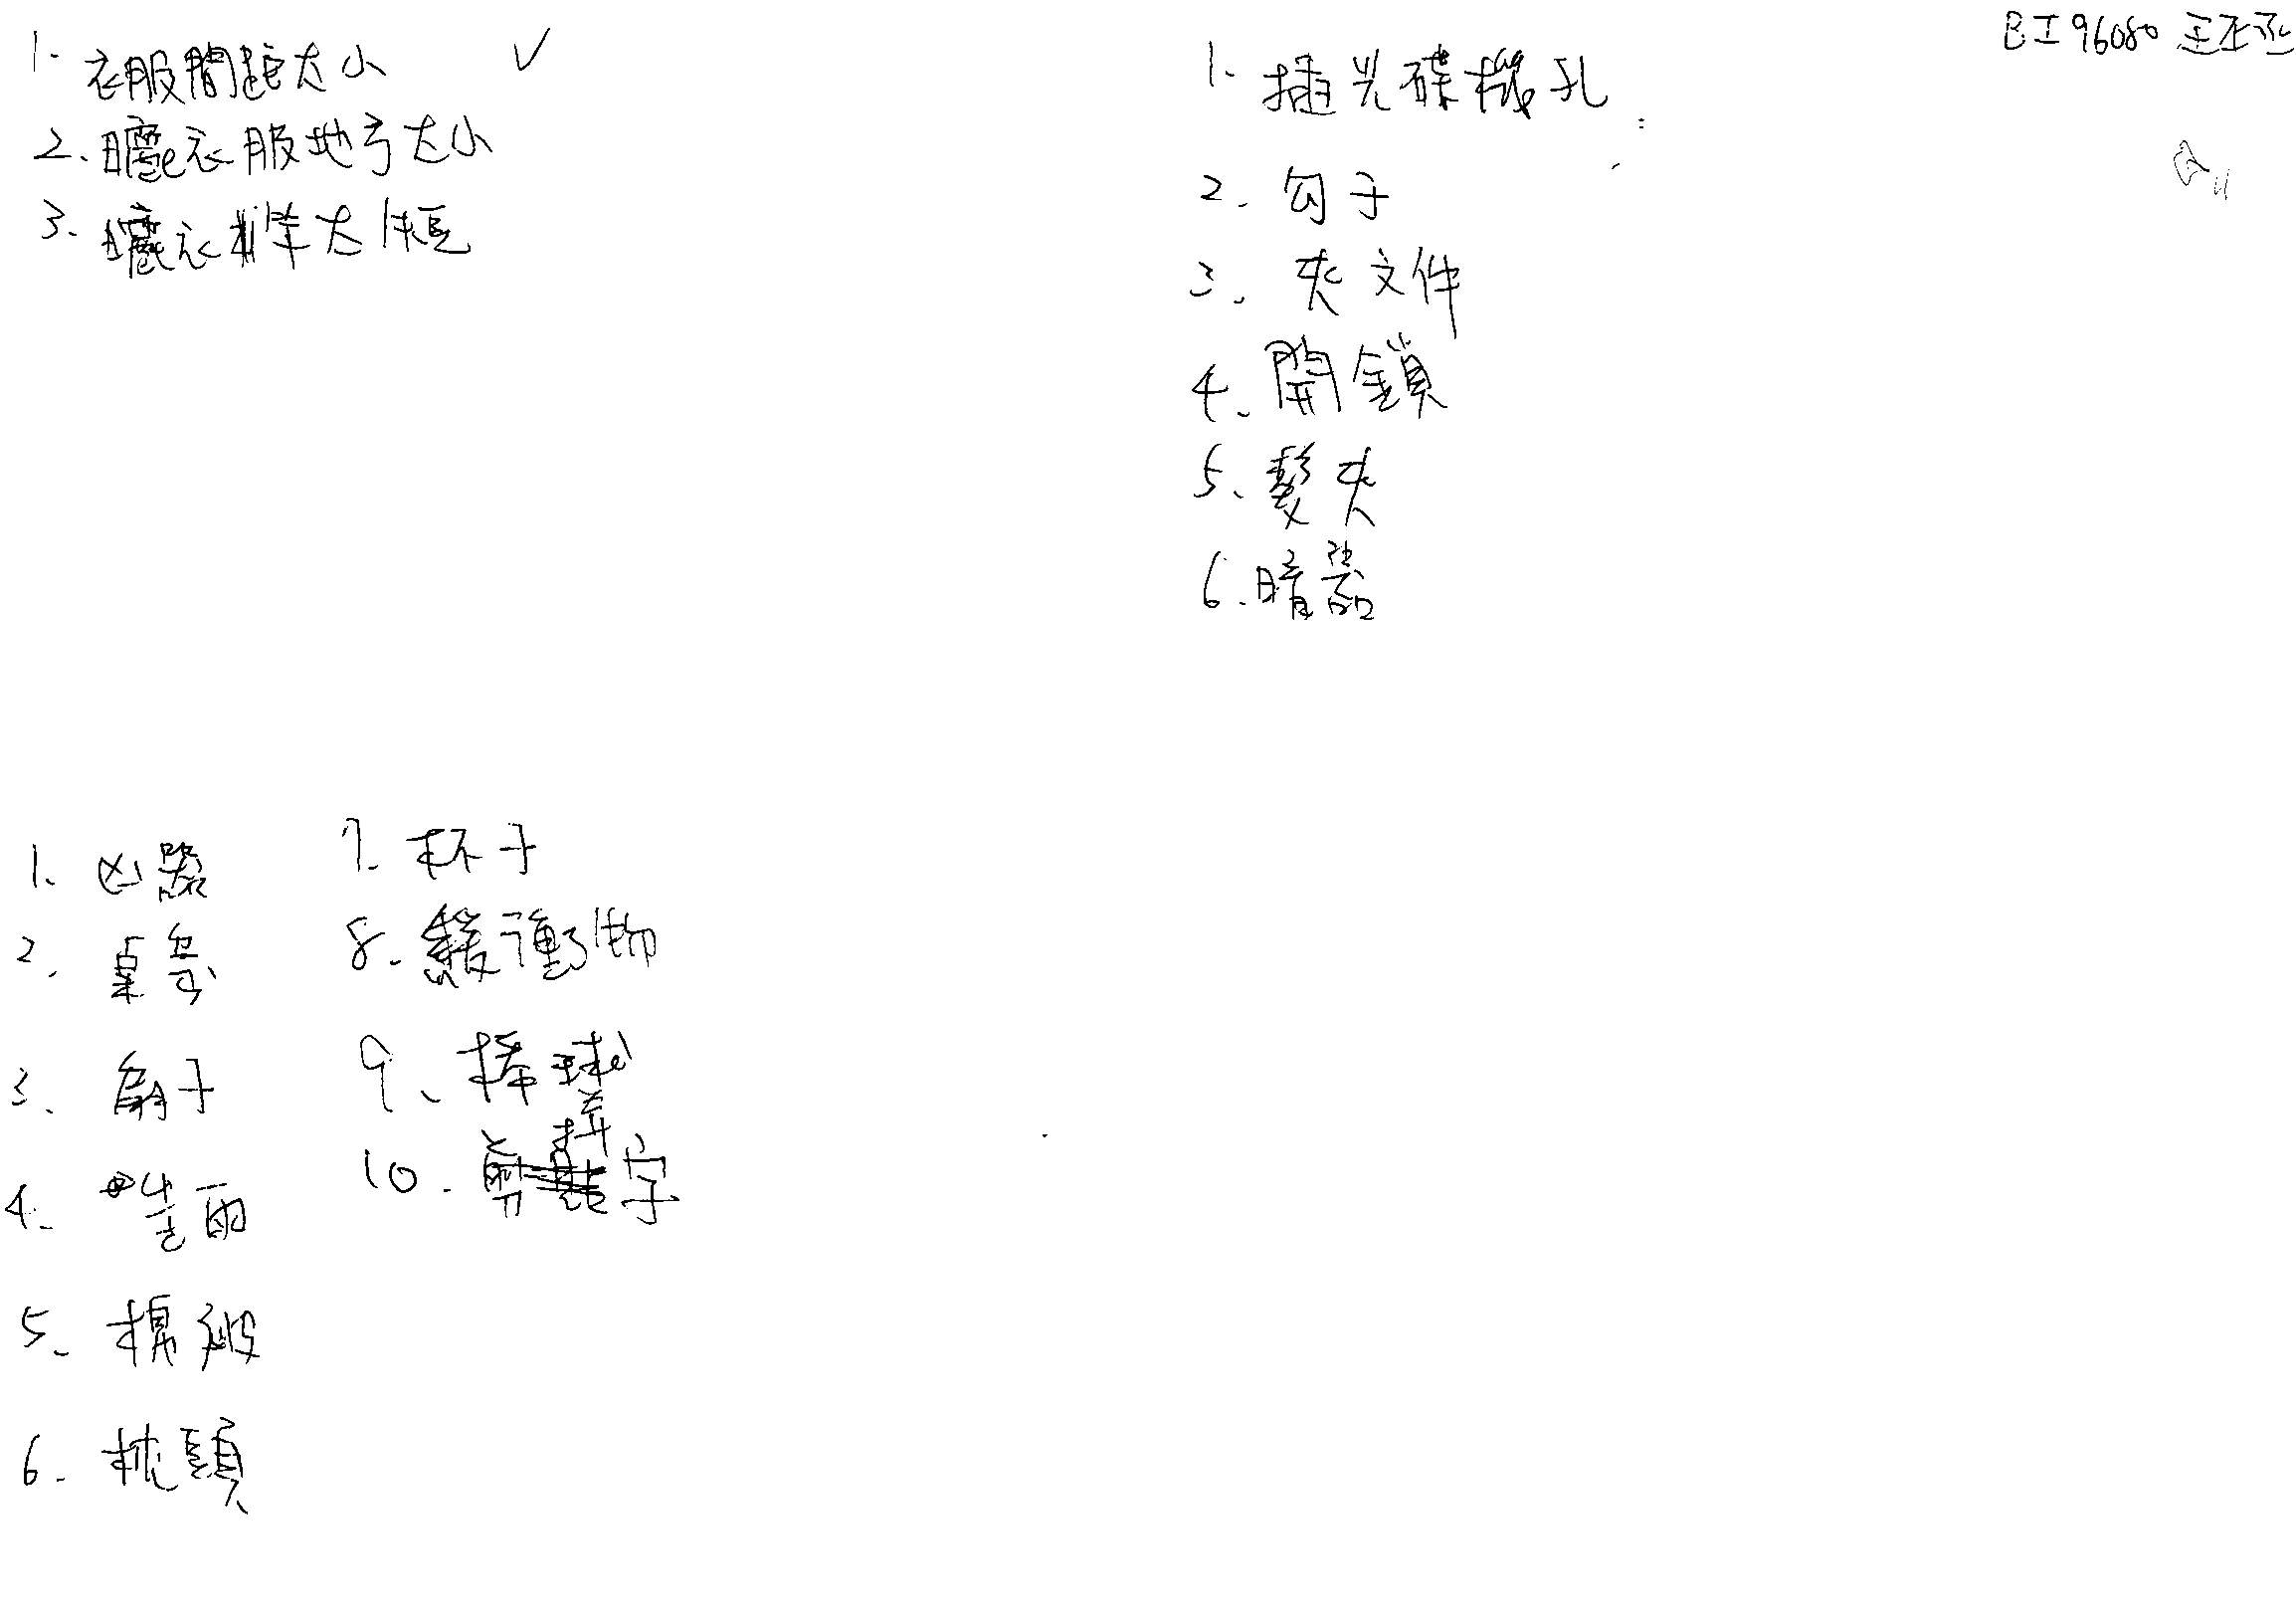 BI96080 王正丞
1. 衣服間距太小 ✓
2. 曬衣服地方太小
3. 曬衣桿太
1. 插光碟機孔
2. 勾子
3. 夾文件
4. 開鎖
5. 髮夾
6. 暗器
1. 凶器
2. 桌墊
3. 扇子
4. 遮雨
5. 棉被
6. 枕頭
7. 杯子
8. 緩衝物
9. 棒球
10. 剪拼字